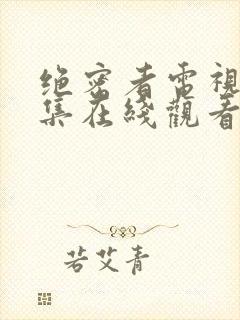 绝密者電視
集在綫觀看
若艾青